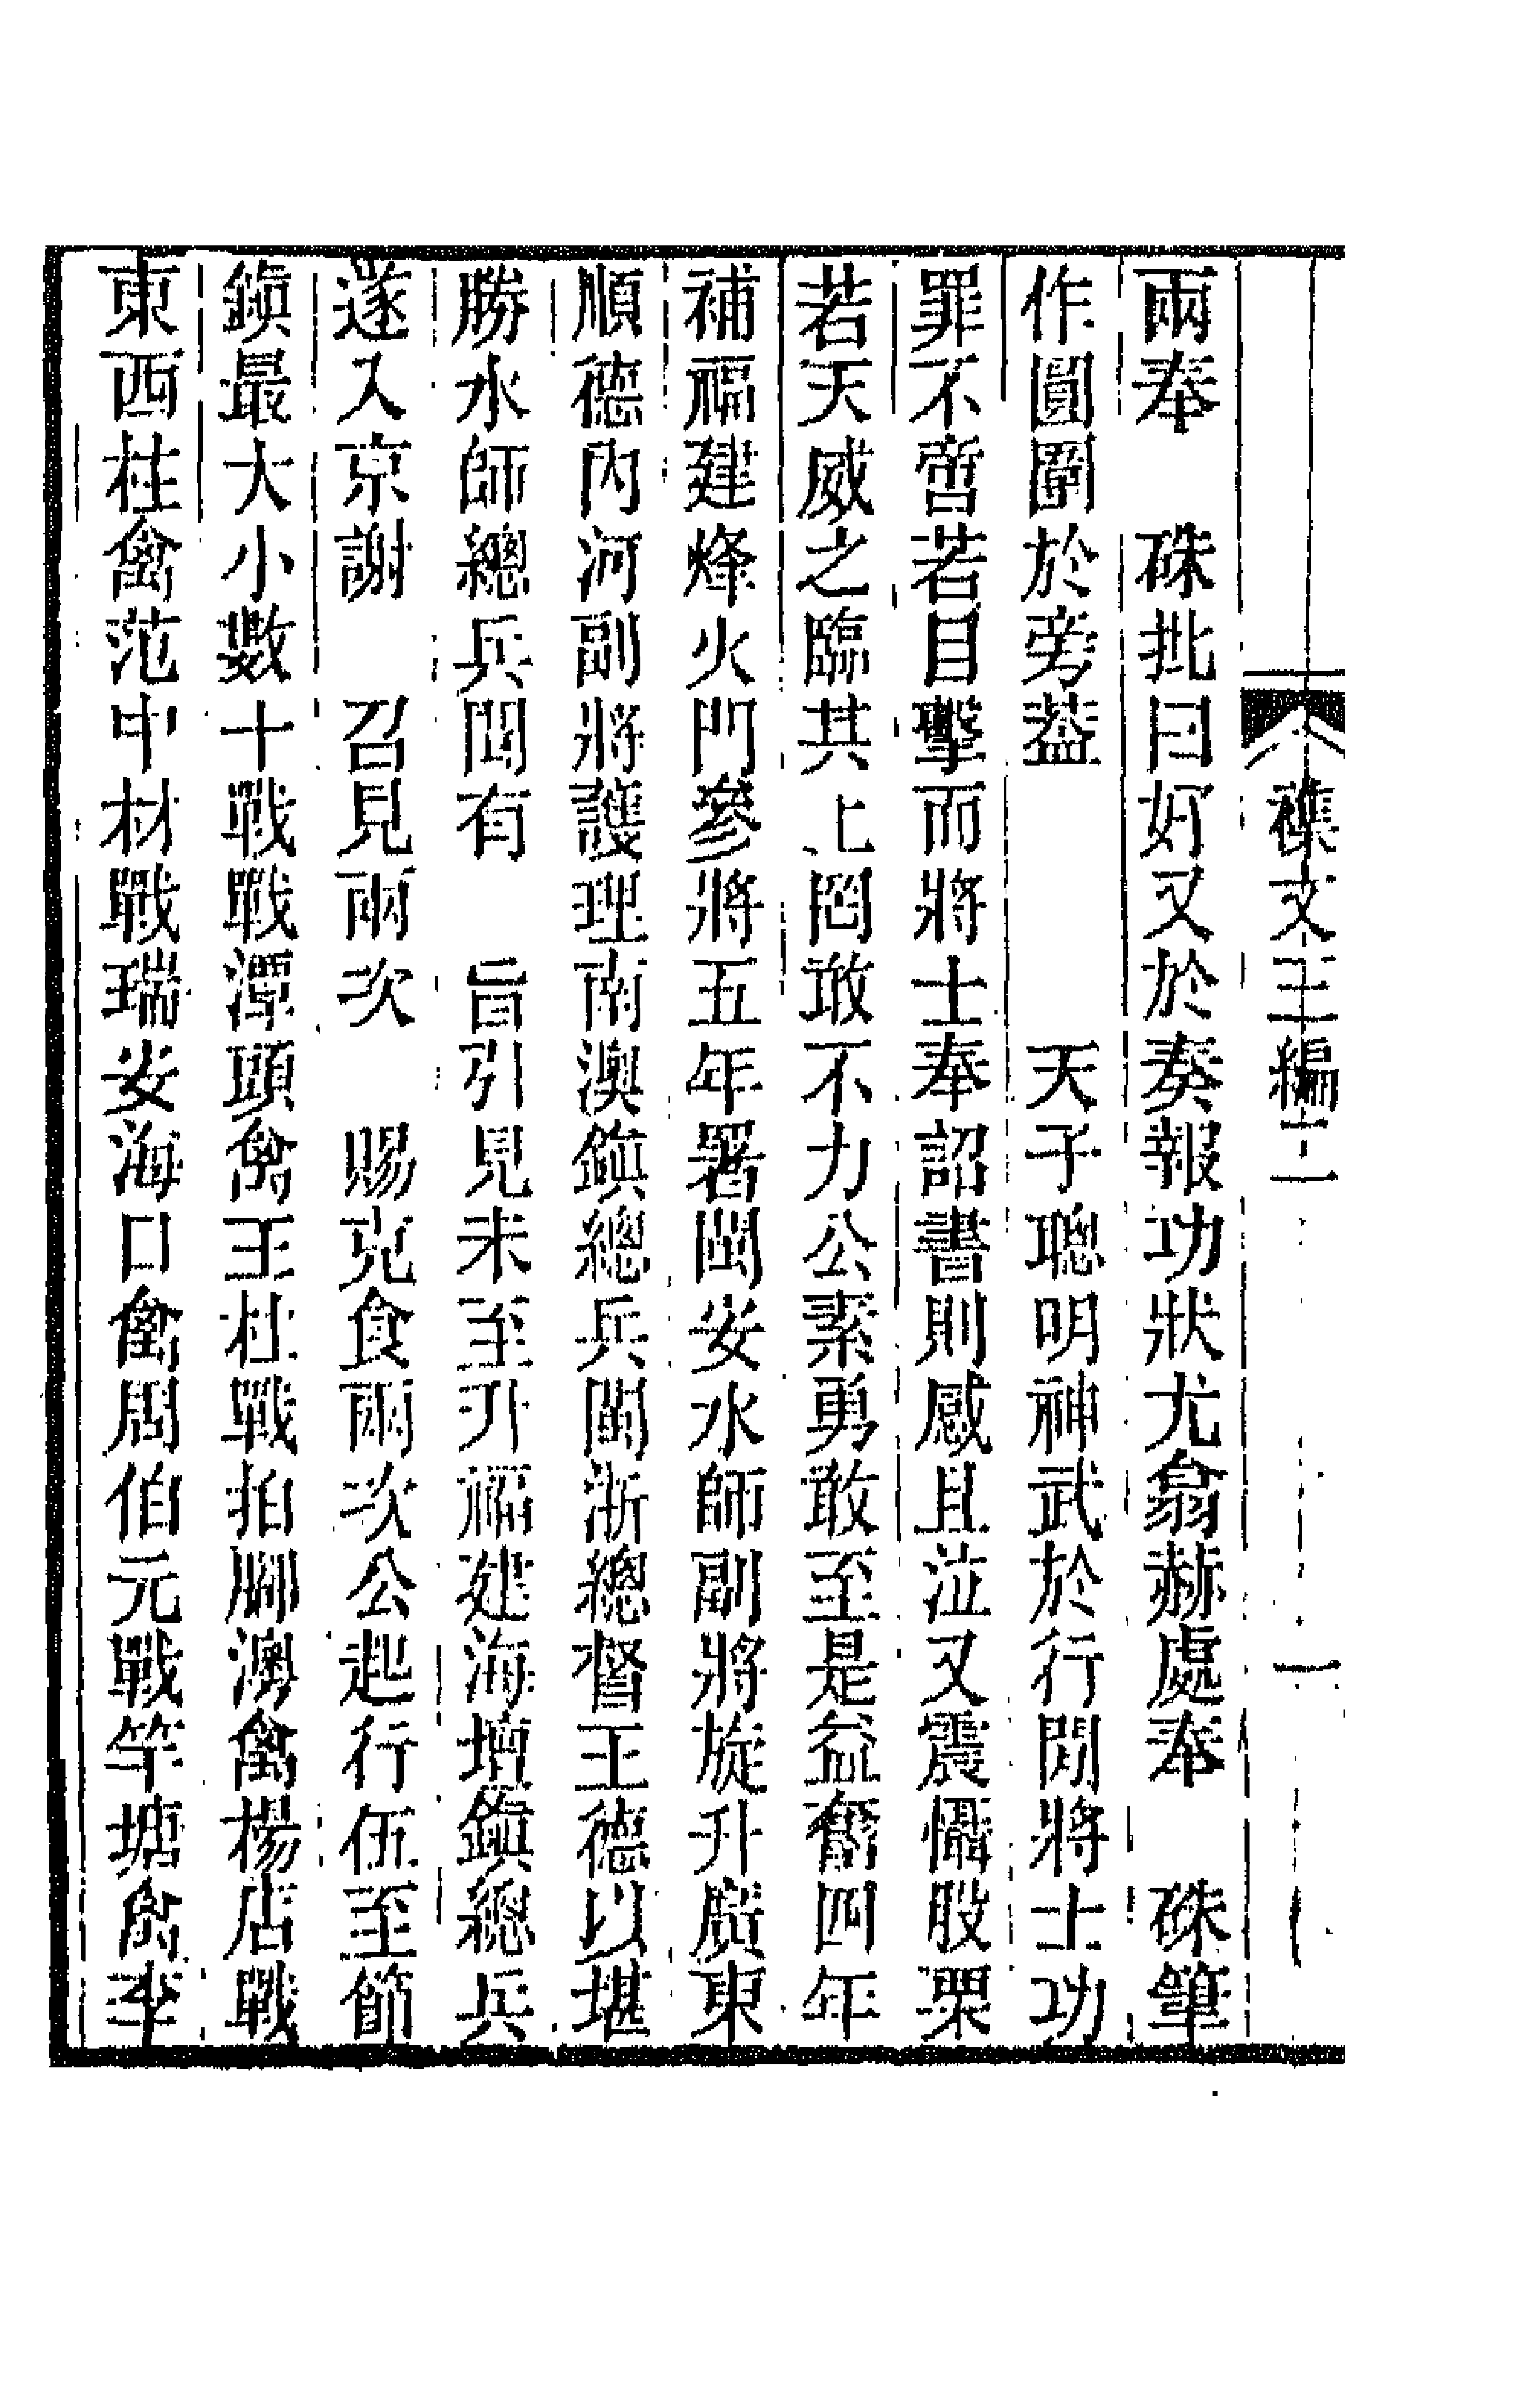 襍文三編二 一
兩奉 硃批曰好又於奏報功狀尤翕赫處奉 硃筆
作圓圈於旁葢 天子聰明神武於行閒將士功
罪不啻若目擊而將士奉詔書則感且泣又震懾股栗
若天威之臨其上罔敢不力公素勇敢至是益奮四年
補福建烽火門參將五年署閩安水師副將旋升廣東
順德內河副將護理南澳鎮總兵閩浙總督王德以堪
勝水師總兵聞有 旨引見未至升福建海壇鎮總兵
遂入京謝 召見兩次 賜克食兩次公起行伍至節
鎮最大小數十戰戰潭頭禽王杜戰拍腳澳禽楊店戰
東西柱禽范中材戰瑞安海口禽周伯元戰竿塘禽李